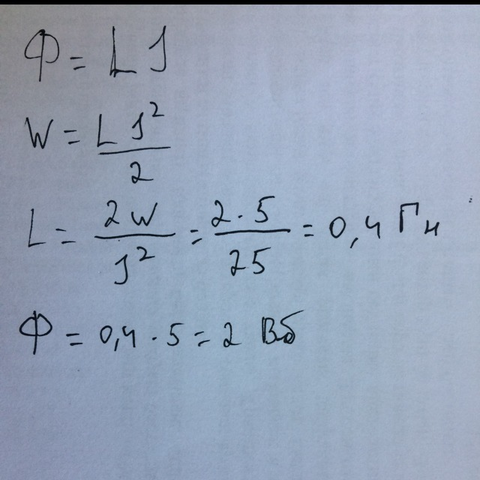 Ф = L I
W = L I² / 2
L = 2W / I² = 2·5 / 25 = 0,4 Гн
Ф = 0,4 · 5 = 2 Вб